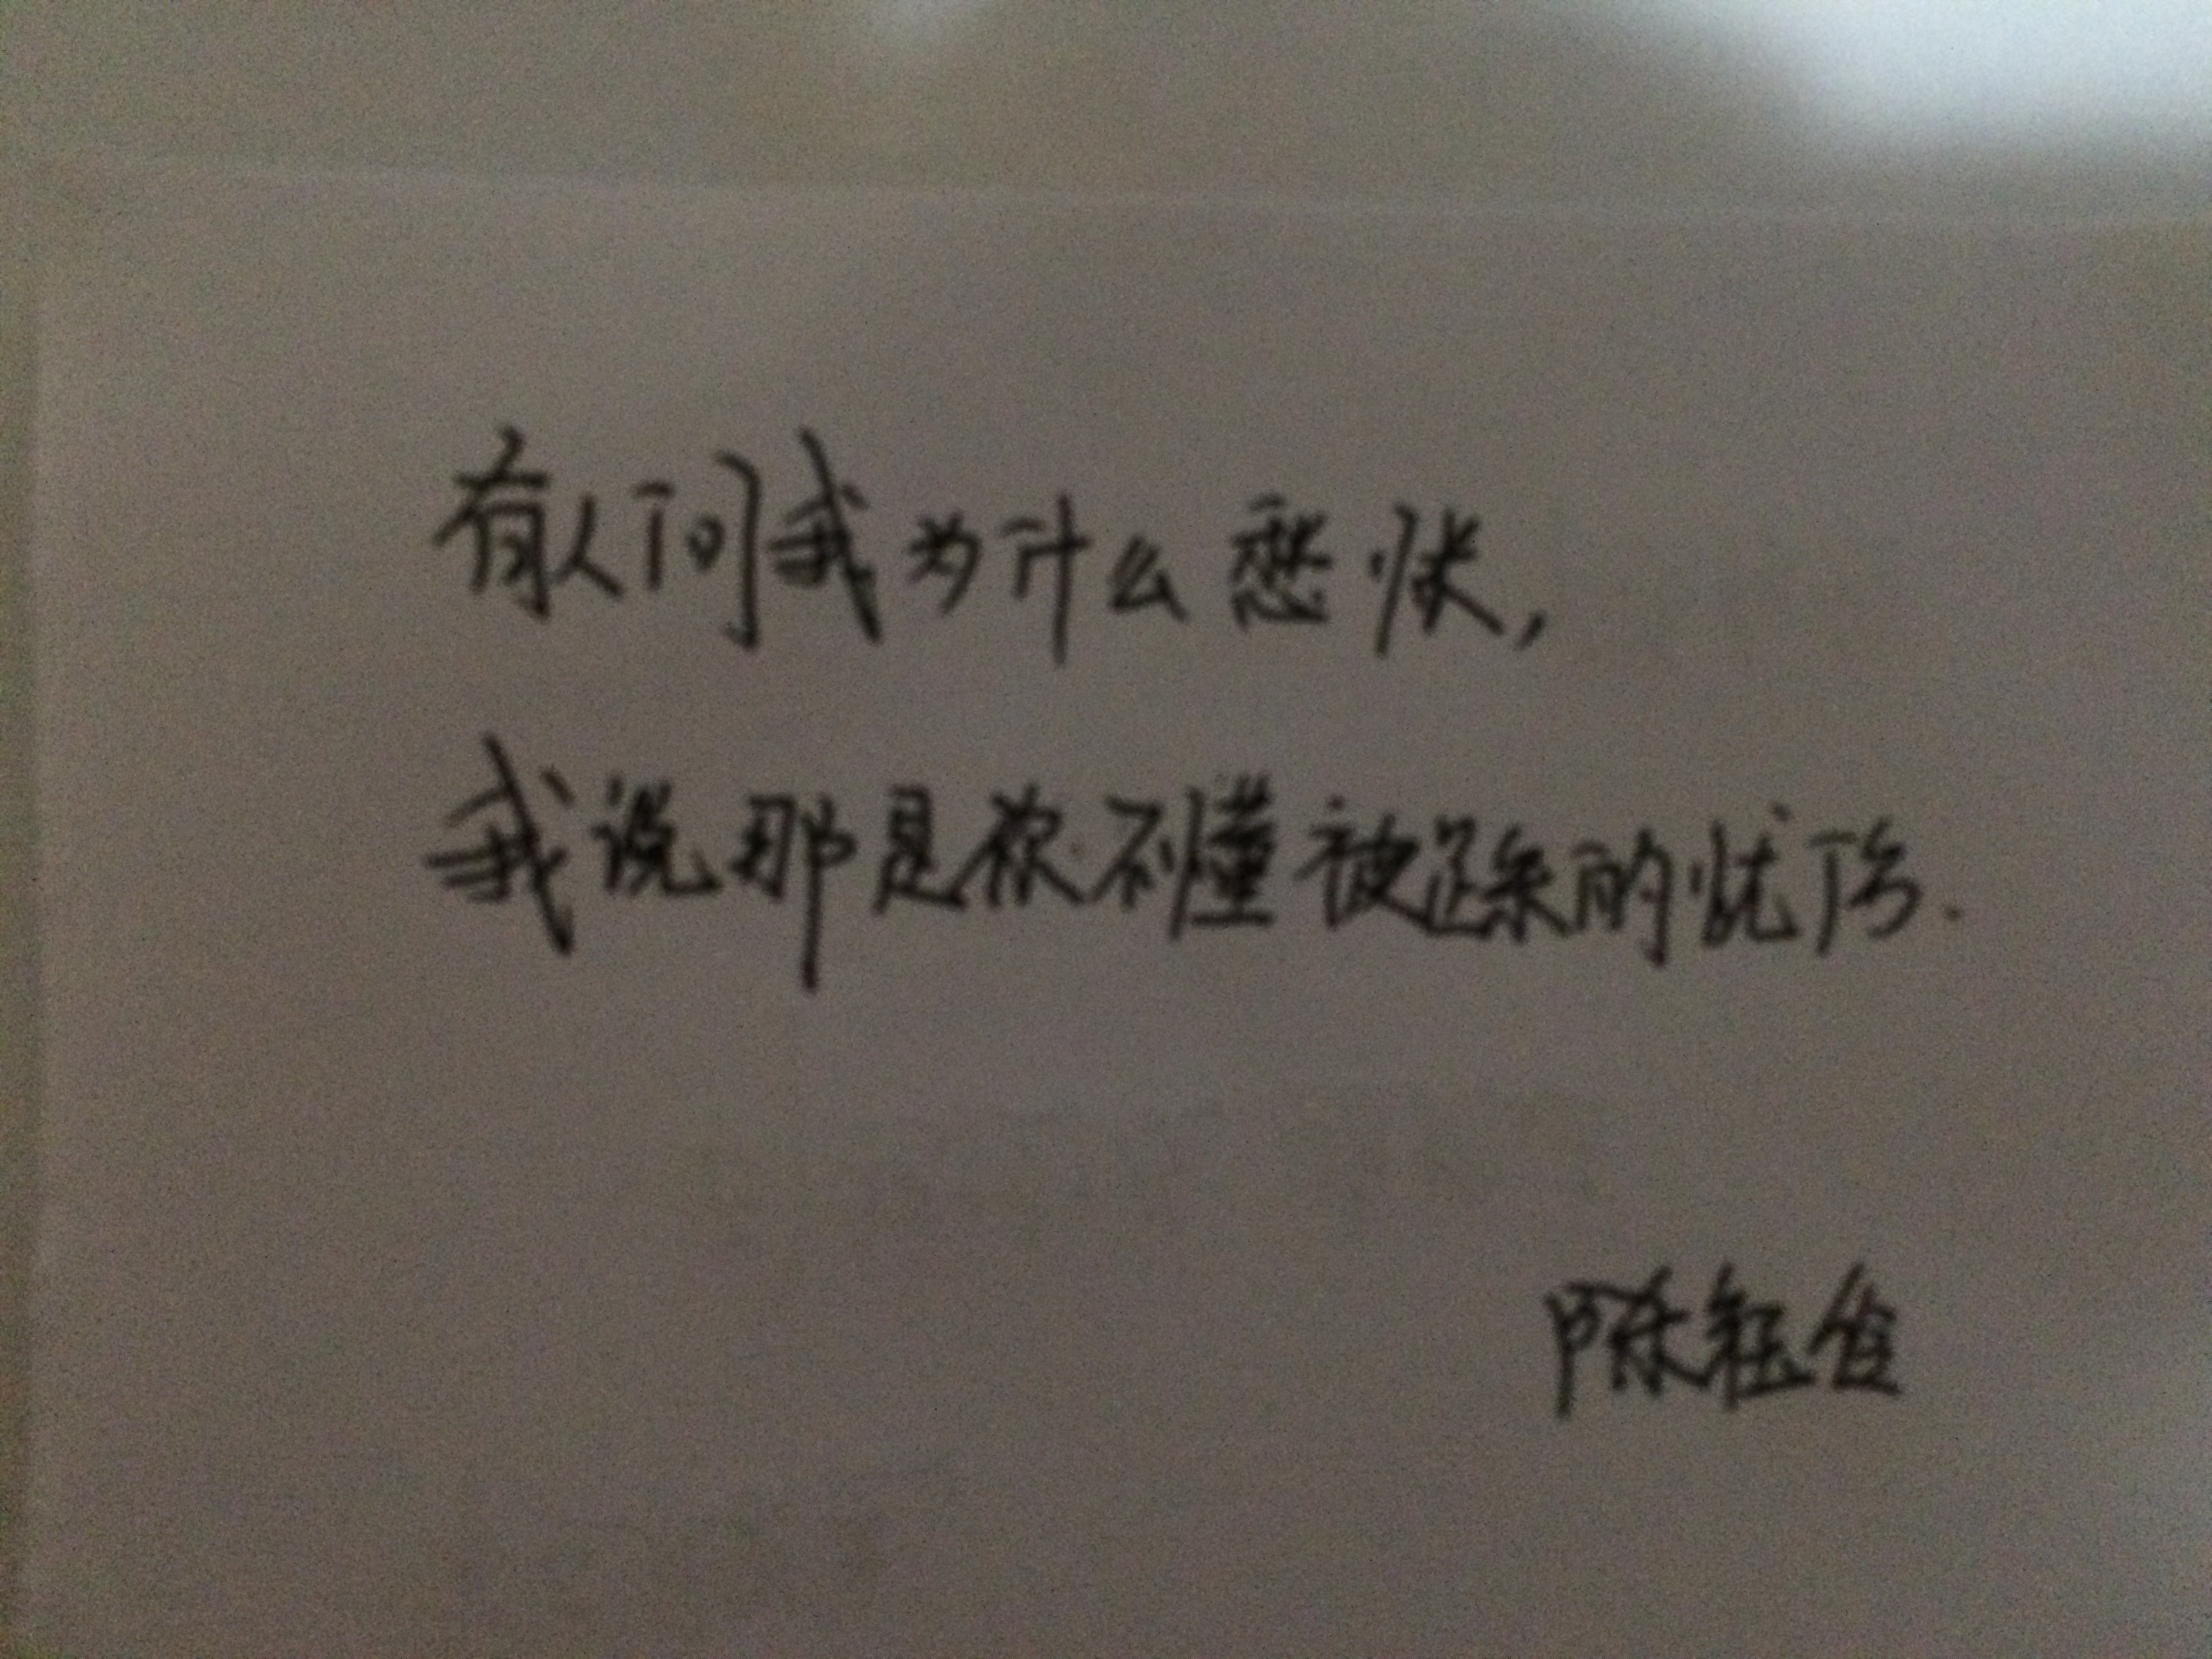 有人问我为什么愁怅,
我说那是你不懂被踩的忧伤.
陈钰